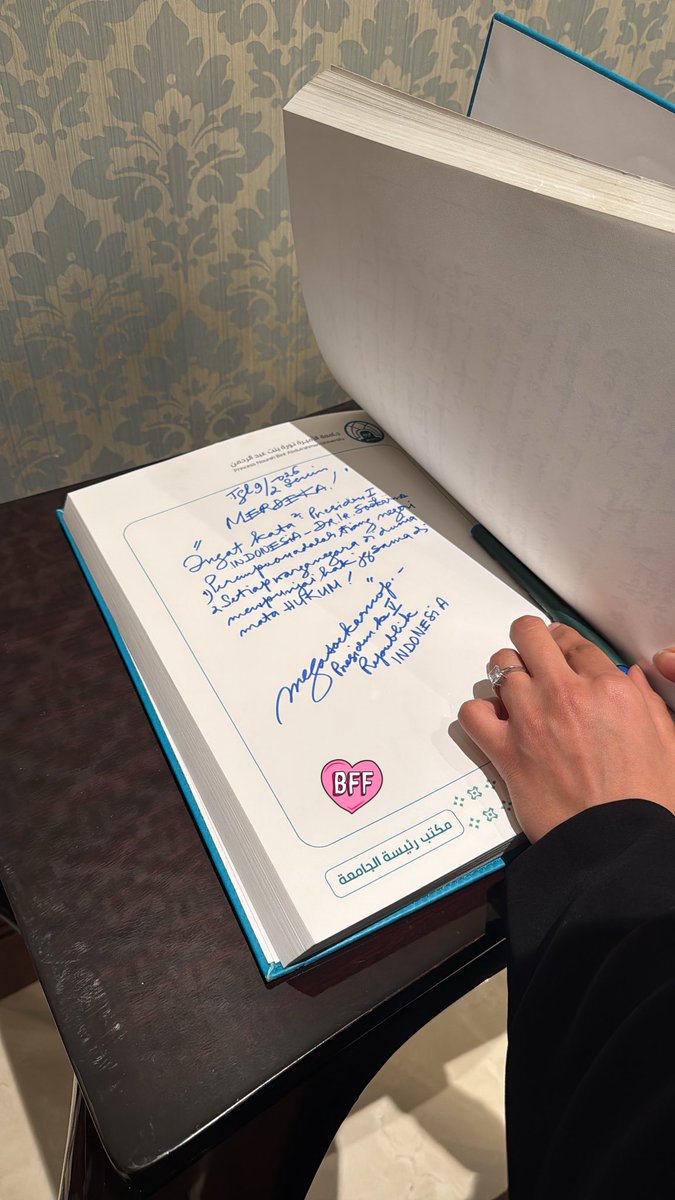 جامعة الأميرة نورة بنت عبد الرحمن
Princess Nourah Bint Abdulrahman University
Tgl 9/2 026
Senin
" MERDEKA! "
Ingat kata2 Presiden I
INDONESIA - DR. Ir. Soekarno
1) Perempuan adalah tiang negeri
2 Setiap warga negara di dunia
mempunyai hak yg sama di
mata HUKUM! "
Megasoekarnop.-
Presiden ke V
Republik
INDONESIA
BFF
مكتب رئيسة الجامعة